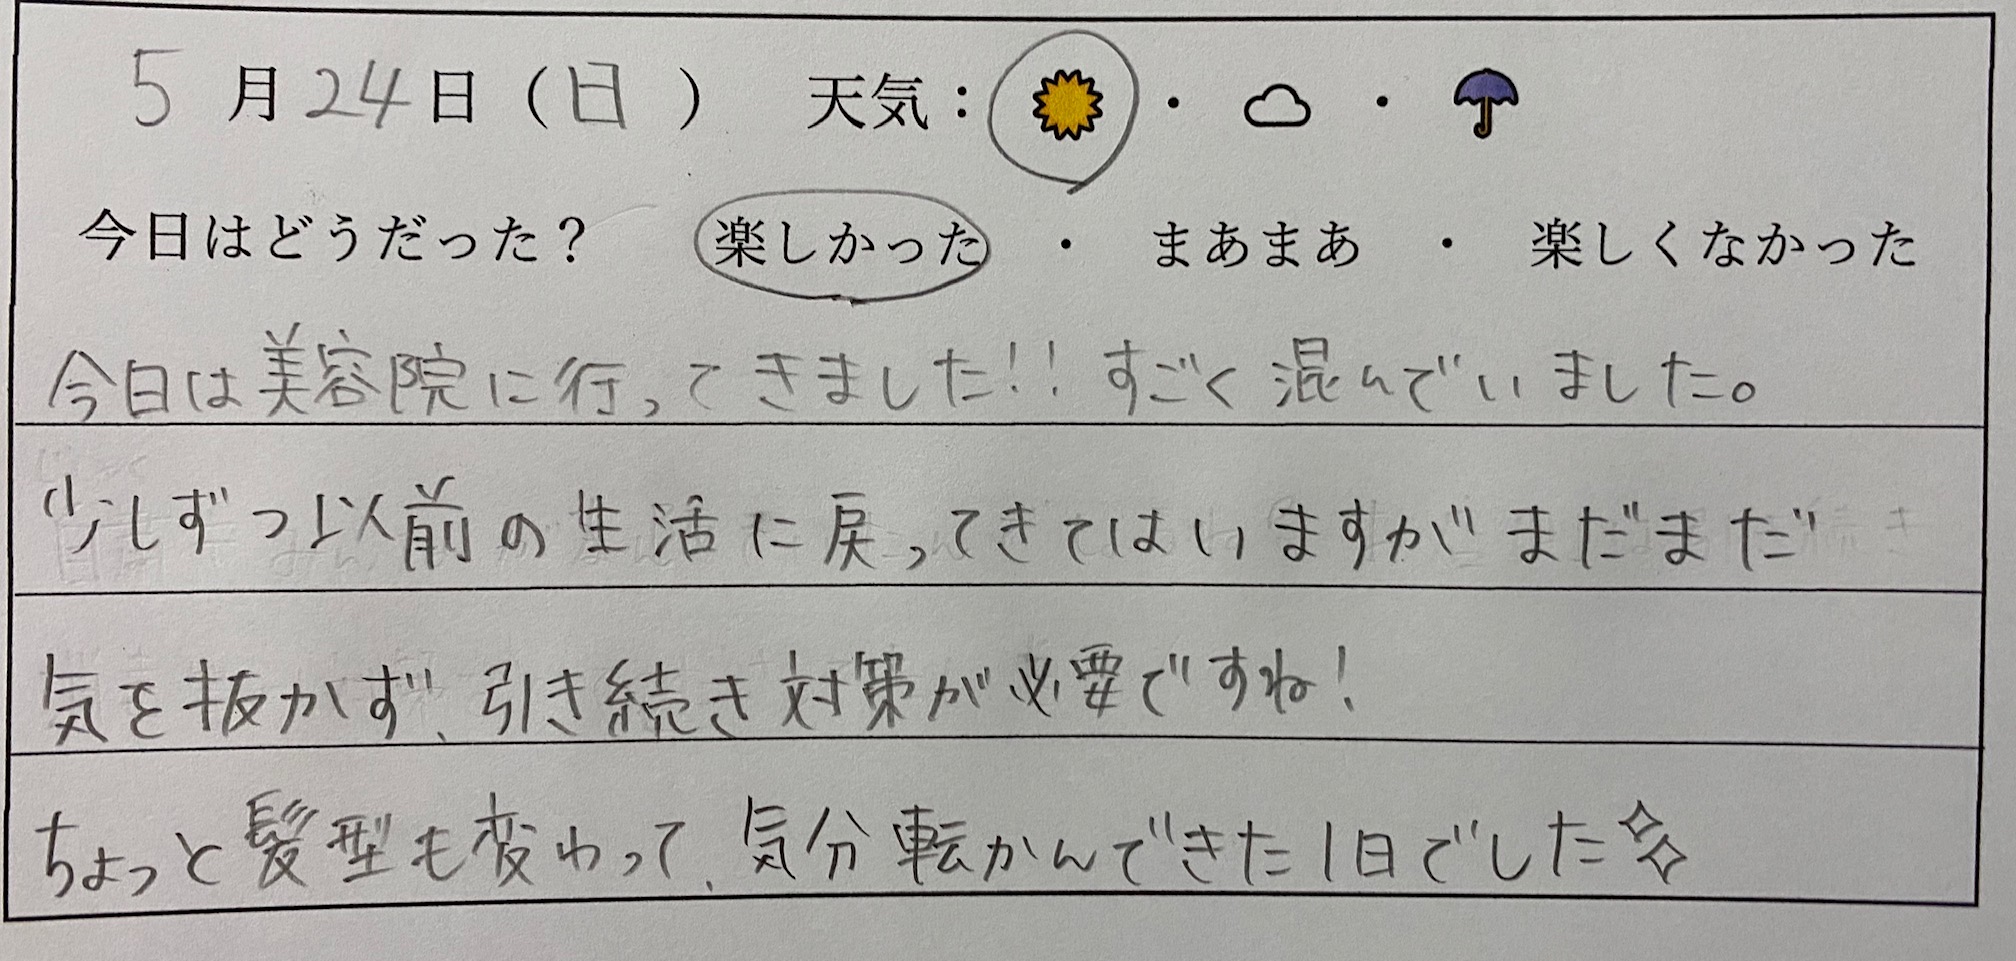 5月24日(日) 天気:☀・☁・☂
今日はどうだった? 楽しかった ・ まあまあ ・ 楽しくなかった
今日は美容院に行ってきました!!すごく混んでいました。
少しずつ以前の生活に戻ってきてはいますがまだまだ
気を抜かず、引き続き対策が必要ですね!
ちょっと髪型も変わって、気分転かんできた1日でした✧✧